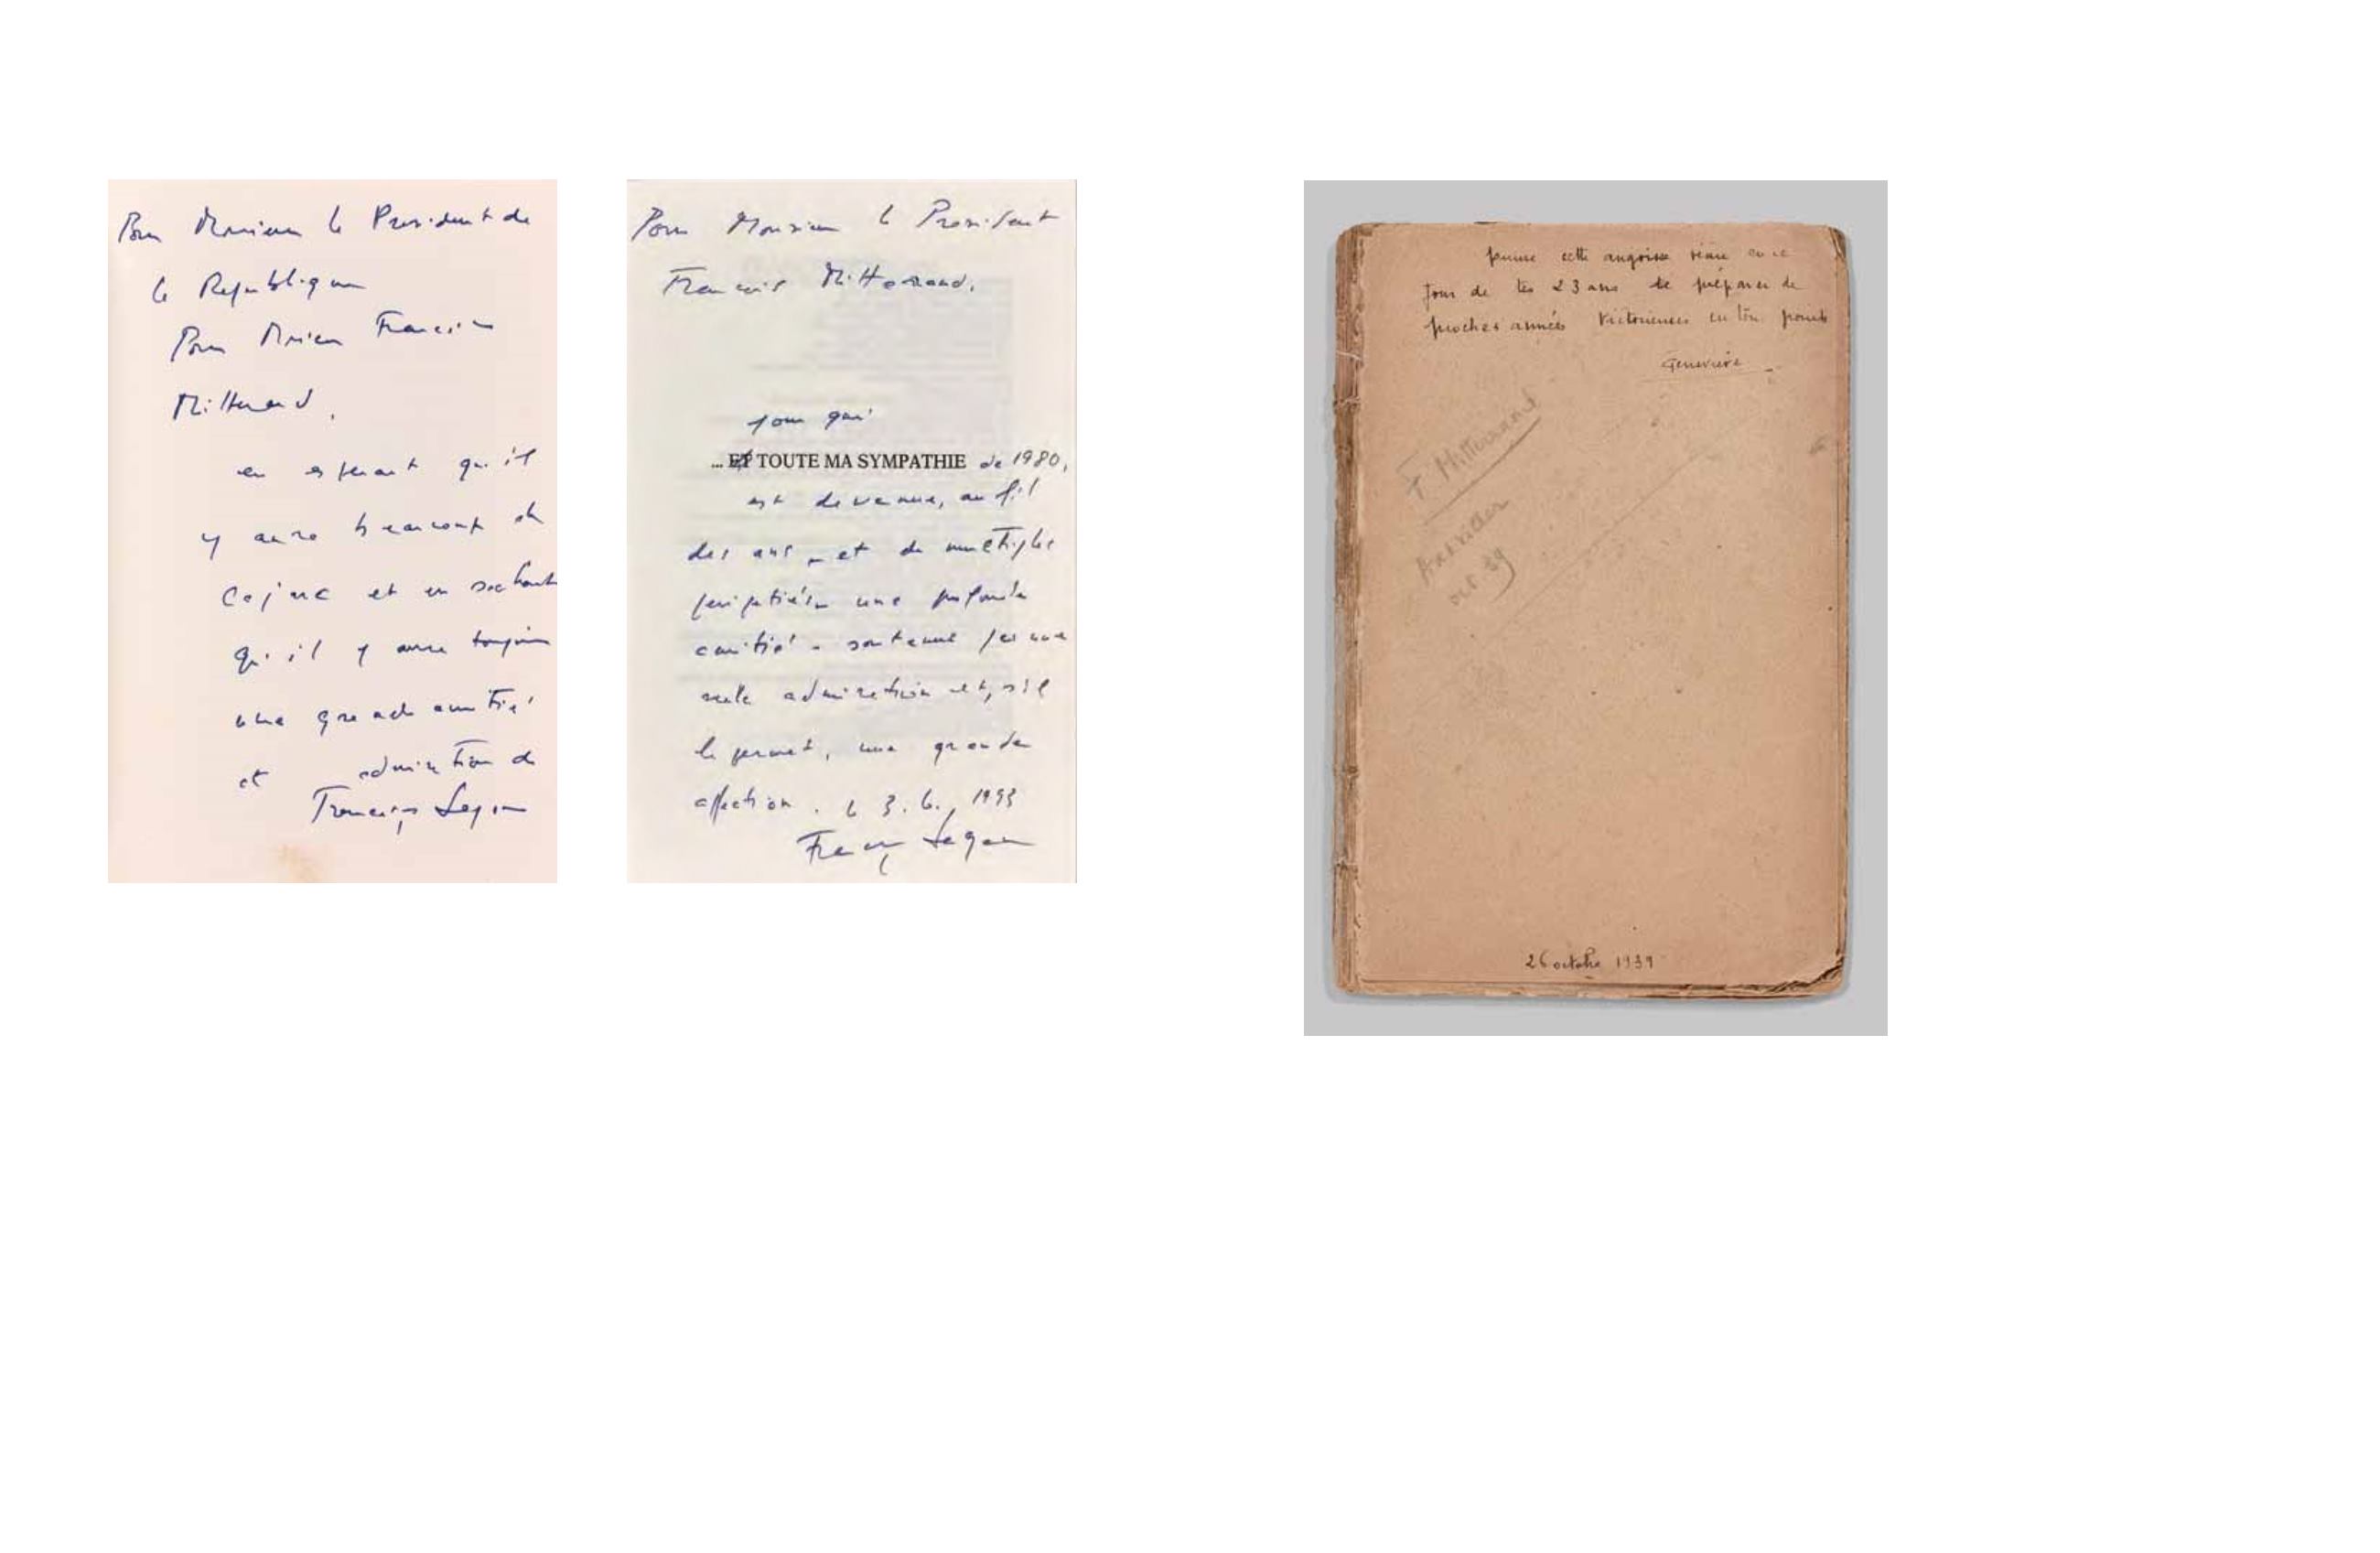 Pour Monsieur le President de
la Republique
Pour Monsieur François
Mitterrand,
en esperant qu'il
y aura beaucoup de
Cajarc et en sachant
qu'il y aura toujours
une grande amitié
et admiration de
Françoise Sagan
Pour Monsieur le President
François Mitterrand,
pour qui
... ET TOUTE MA SYMPATHIE de 1980,
est devenue, au fil
des ans _ et de multiples
peripeties _ une profonde
amitié - soutenue par une
réelle admiration et, s'il
le permet, une grande
affection. le 3.6., 1993
Françoise Sagan
puisse cette angoisse vécue en ce
jour de tes 23 ans te préparer de
proches années victorieuses en tous points
Geneviève
F. Mitterrand
oct 39
26 octobre 1939